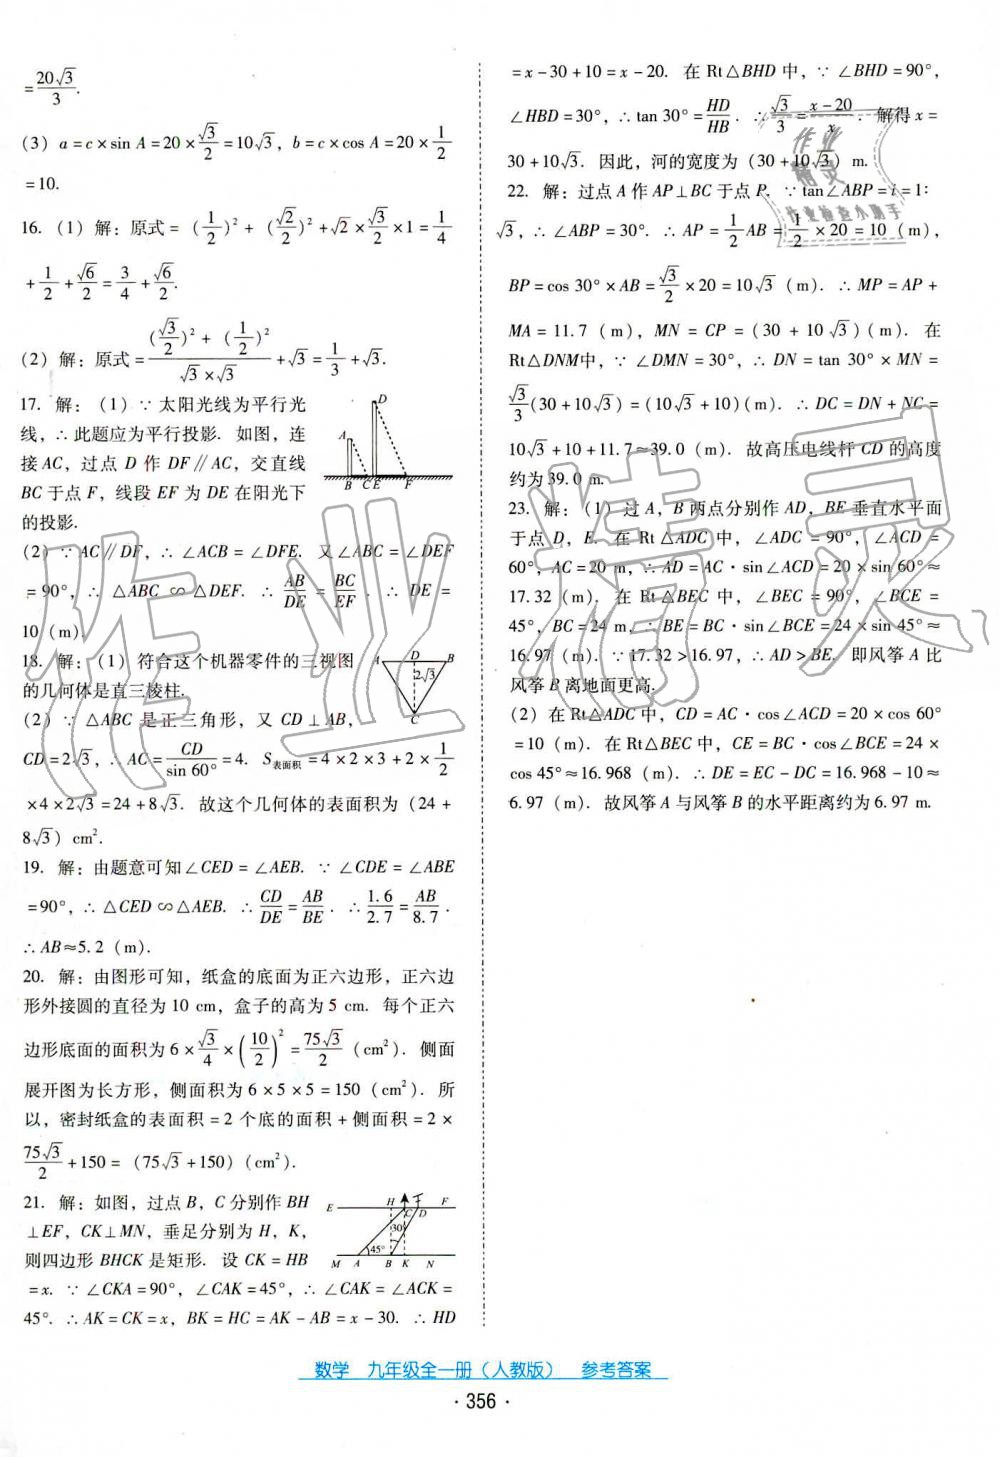 =20√3/3.
(3) a=c×sin A=20×√3/2=10√3, b=c×cos A=20×1/2
=10.
16. (1) 解:原式=(1/2)²+(√2/2)²+√2×√3/2×1=1/4
+1/2+√6/2=3/4+√6/2.
(2) 解:原式=((√3/2)²+(1/2)²)/(√3×√3)+√3=1/3+√3.
17. 解:(1) ∵ 太阳光线为平行光
线,∴ 此题应为平行投影. 如图,连
接 AC,过点 D 作 DF∥AC,交直线
BC 于点 F,线段 EF 为 DE 在阳光下
的投影.
A D B C E F
(2) ∵ AC∥DF,∴ ∠ACB=∠DFE. 又∠ABC=∠DEF
=90°,∴ △ABC ∽ △DEF. ∴ AB/DE=BC/EF. ∴ DE =
10 (m).
18. 解:(1) 符合这个机器零件的三视图
的几何体是直三棱柱.
A D B 2√3 C
(2) ∵ △ABC 是正三角形,又 CD⊥AB,
CD=2√3,∴ AC=CD/sin 60°=4. S表面积=4×2×3+2×1/2
×4×2√3=24+8√3. 故这个几何体的表面积为(24+
8√3) cm².
19. 解:由题意可知∠CED=∠AEB. ∵ ∠CDE=∠ABE
=90°,∴ △CED∽△AEB. ∴ CD/DE=AB/BE. ∴ 1.6/2.7=AB/8.7.
∴ AB≈5.2 (m).
20. 解:由图形可知,纸盒的底面为正六边形,正六边
形外接圆的直径为 10 cm,盒子的高为 5 cm. 每个正六
边形底面的面积为 6×√3/4×(10/2)²=75√3/2 (cm²). 侧面
展开图为长方形,侧面积为 6×5×5=150 (cm²). 所
以,密封纸盒的表面积=2 个底的面积+侧面积=2×
75√3/2+150=(75√3+150)(cm²).
21. 解:如图,过点 B,C 分别作 BH
⊥EF,CK⊥MN,垂足分别为 H,K,
则四边形 BHCK 是矩形. 设 CK=HB
E H C D F 30° 45° M A B K N
=x. ∵ ∠CKA=90°,∠CAK=45°,∴ ∠CAK=∠ACK=
45°. ∴ AK=CK=x,BK=HC=AK-AB=x-30. ∴ HD
=x-30+10=x-20. 在 Rt△BHD 中,∵ ∠BHD=90°,
∠HBD=30°,∴ tan 30°=HD/HB. ∴ √3/3=(x-20)/x. 解得 x=
30+10√3. 因此,河的宽度为(30+10√3) m.
22. 解:过点 A 作 AP⊥BC 于点 P. ∵ tan∠ABP=i=1:
√3,∴ ∠ABP=30°. ∴ AP=1/2AB=1/2×20=10 (m),
BP=cos 30°×AB=√3/2×20=10√3 (m). ∴ MP=AP+
MA=11.7 (m),MN=CP=(30+10√3)(m). 在
Rt△DNM中,∵ ∠DMN=30°,∴ DN=tan 30°×MN=
√3/3(30+10√3)=(10√3+10)(m). ∴ DC=DN+NC=
10√3+10+11.7≈39.0 (m). 故高压电线杆 CD 的高度
约为 39.0 m.
23. 解:(1) 过 A,B 两点分别作 AD,BE 垂直水平面
于点 D,E. 在 Rt△ADC 中,∠ADC=90°,∠ACD=
60°,AC=20 m,∴ AD=AC·sin∠ACD=20×sin 60°≈
17.32 (m). 在 Rt△BEC 中,∠BEC=90°,∠BCE=
45°,BC=24 m,∴ BE=BC·sin∠BCE=24×sin 45°≈
16.97 (m). ∵ 17.32>16.97,∴ AD>BE. 即风筝 A 比
风筝 B 离地面更高.
(2) 在 Rt△ADC 中,CD=AC·cos∠ACD=20×cos 60°
=10 (m). 在 Rt△BEC 中,CE=BC·cos∠BCE=24×
cos 45°≈16.968 (m). ∴ DE=EC-DC=16.968-10≈
6.97 (m). 故风筝 A 与风筝 B 的水平距离约为 6.97 m.
作业精灵
作业
精灵
作业检查小助手
数学 九年级全一册(人教版) 参考答案
·356·